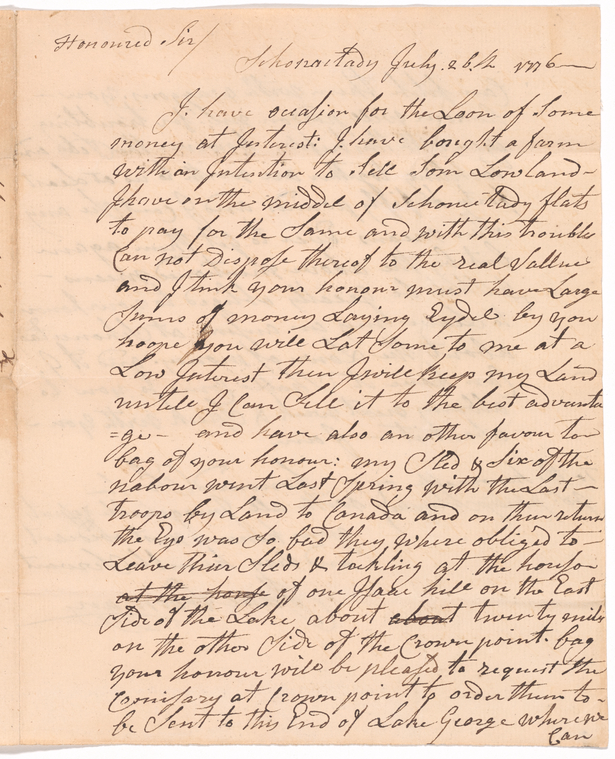 Honoured Sir/
Schonactady July. 26.th 1776
I. have ocasion for the Loon of Some
money at Interest: I have bought a farm
with an Intention to Sell Som Lowland
I have on the middel of Schonectady flats
to pay for the Same and with this troubles
Can not Dispose thereof to the real Vallue
and I tink your honour must have Large
Sums of money Laying Eydel by you
hoope you will Lat Some to me at a
Low Interest then I will keep my Land
untill I Can Sell it to the best advanta
=ge- and have also an other favour to
bag of your honour: my Sled & Six of the
nabour wint Last Spring with the Last
troops by Land to Canada and on their return
the Eys was So bad they where obliged to
Leave thier Sleds & tackling at the house
at the house of one Isaac hill on the East
Side of the Lake about about twenty mils
on the other Side of the Crown point. bag
your honour will be pleased to request the
Comisary at Crown point to order them to
be Sent to this End of Lake George where we
Can